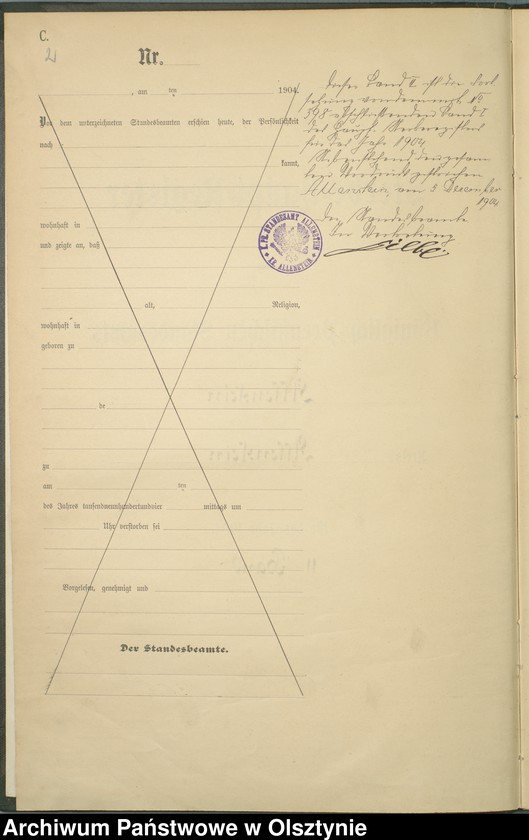 C.
2
Nr.
, am ten 1904.
Vor dem unterzeichneten Standesbeamten erschien heute, der Persönlichkeit
nach
kannt,
wohnhaft in
und zeigte an, daß
alt, Religion,
wohnhaft in
geboren zu
de
zu
am ten
des Jahres tausendneunhundertundvier mittags um
Uhr verstorben sei
Vorgelesen, genehmigt und
Der Standesbeamte.
Dieser Band II ist die Fort-
setzung von dem mit No
598 abschließenden Band I
des Haupt-Sterberegisters
für das Jahr 1904
Nebenstehend der gesam
Vordruck gestrichen
Allenstein, am 3 Dezember
1904
Der Standesbeamte
In Vertretung
K. PR. STANDESAMT ALLENSTEIN
KR. ALLENSTEIN
Archiwum Państwowe w Olsztynie